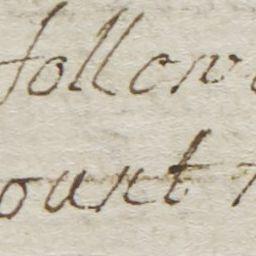 follow
ount